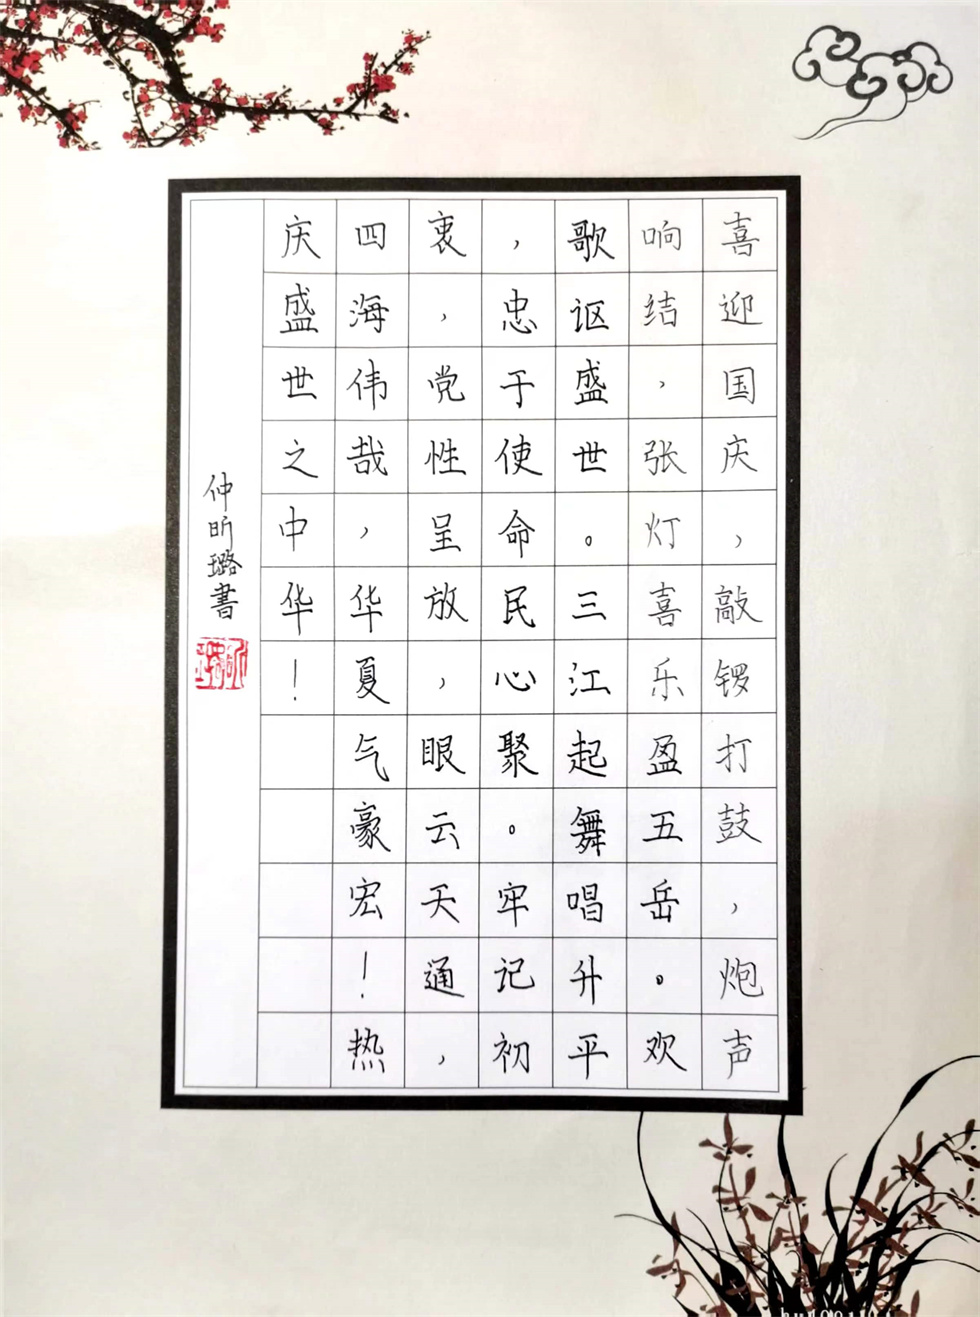 喜迎国庆，敲锣打鼓，炮声
响结，张灯喜乐盈五岳。欢
歌讴盛世。三江起舞唱升平
，忠于使命民心聚。牢记初
衷，党性呈放，眼云天通，
四海伟哉，华夏气豪宏！热
庆盛世之中华！
仲昕璐書